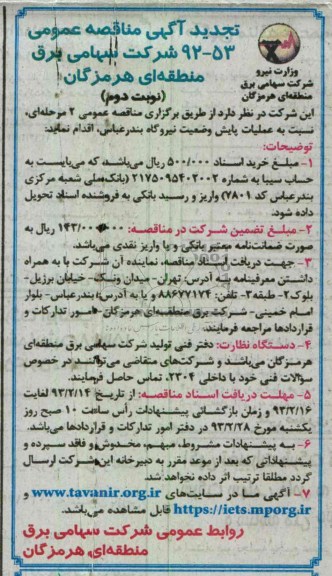 تجدید آگهی مناقصه عمومی
۹۲-۵۳ شرکت سهامی برق
منطقه‌ای هرمزگان
(نوبت دوم)
وزارت نیرو
شرکت سهامی برق
منطقه‌ای هرمزگان
این شرکت در نظر دارد از طریق برگزاری مناقصه عمومی ۲ مرحله‌ای،
نسبت به عملیات پایش وضعیت نیروگاه بندرعباس، اقدام نماید:
توضیحات:
۱- مبلغ خرید اسناد ۵۰۰/۰۰۰ ریال می‌باشد، که می‌بایست به
حساب سیبا به شماره ۲۱۷۵۰۹۵۴۰۲۰۰۲ (بانک ملی شعبه مرکزی
بندرعباس کد ۷۸۰۱) واریز و رسید بانکی به فروشنده اسناد تحویل
داده شود.
۲- مبلغ تضمین شرکت در مناقصه: ۱۴۳/۰۰۰/۰۰۰ ریال به
صورت ضمانت‌نامه معتبر بانکی و یا واریز نقدی می‌باشد.
۳- جهت دریافت اسناد مناقصه، نماینده آن شرکت با به همراه
داشتن معرفینامه به: آدرس: تهران- میدان ونک- خیابان برزیل-
بلوک ۲- طبقه ۳- تلفن: ۸۸۶۷۷۱۷۴ و یا به آدرس: بندرعباس- بلوار
امام خمینی- شرکت برق منطقه‌ای هرمزگان- امور تدارکات و
قراردادها مراجعه فرمایند.
۴- دستگاه نظارت: دفتر فنی تولید شرکت سهامی برق منطقه‌ای
هرمزگان می‌باشد و شرکت‌های متقاضی می‌توانند در خصوص
سؤالات فنی خود با داخلی ۲۳۰۴، تماس حاصل فرمایند.
۵- مهلت دریافت اسناد مناقصه: از تاریخ ۹۳/۲/۱۴ لغایت
۹۳/۲/۱۶ و زمان بازگشائی پیشنهادات رأس ساعت ۱۰ صبح روز
یکشنبه مورخ ۹۳/۲/۲۸ در دفتر امور تدارکات و قراردادها می‌باشد.
۶- به پیشنهادات مشروط، مبهم، مخدوش و فاقد سپرده و
پیشنهاداتی که بعد از موعد مقرر به دبیرخانه این شرکت ارسال
گردد مطلقا ترتیب اثر داده نخواهد شد.
۷- آگهی ما در سایت‌های www.tavanir.org.ir و
https://iets.mporg.ir قابل مشاهده می‌باشد.
روابط عمومی شرکت سهامی برق
منطقه‌ای هرمزگان